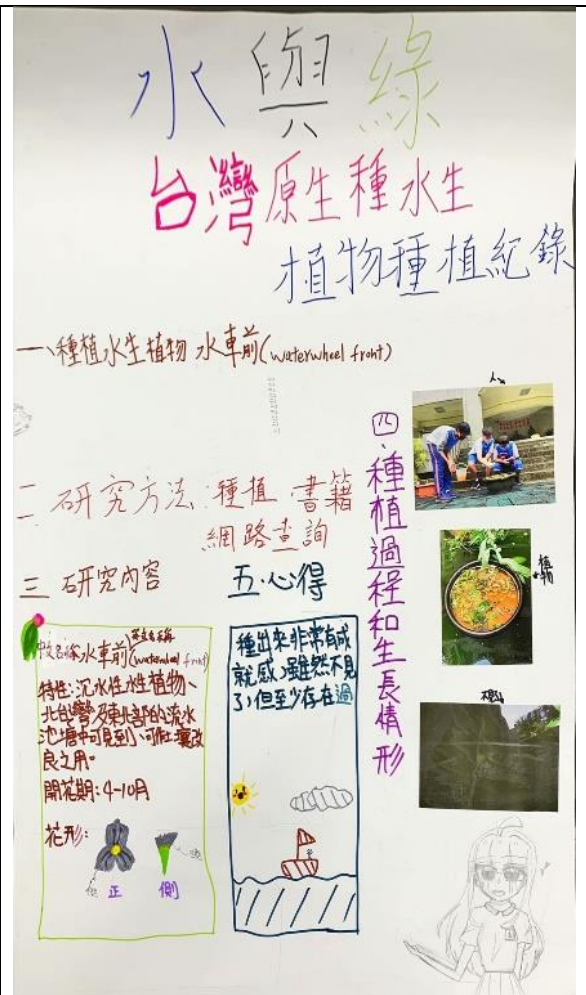 水與綠
台灣原生種水生
植物種植紀錄
一、種植水生植物 水車前(waterwheel front)
二 研究方法:種植 書籍
網路查詢
三 研究內容
中文名稱 水車前 英文名稱 (waterwheel front)
特性:沉水性水生植物、
北台灣及東北部的流水
池塘中可見到、可作土壤改
良之用。
開花期:4-10月
花形:
正
側
五.心得
種出來非常有成
就感,雖然不見
了,但至少存在過
四.種植過程和生長情形
人
植物